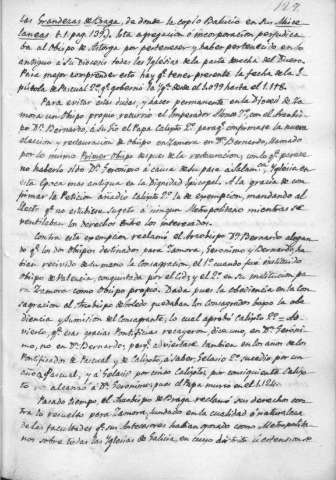 127.
las Grandezas de Braga, de donde la copió Balicio en su Misce
laneas t.1 pag. 139). Esta agregacion é incorporacion perjudica
ba al Obispo de Astorga por pertenecer y haber pertenecido en lo
antiguo á su Diocesis todas las Iglesias de la parte de acha del Duero.
Para mejor comprender esto hay q.e tener presente la fecha de la E
pistola de Pascual 2.º q.e governó la Ig.a desde el 1099 hasta el 1118.
Para evitar estas dudas, y hacer permanente en la Diocesis de Za
mora un Obispo propio recurrió el Emperador Alonso 7.º, con el Arzobis
po D.n Bernardo, á su tio el Papa Calixto 2.º para q.e confirmase la nueva
eleccion y restauracion de Obispo en Zamora en D.n Bernardo, llamado
por lo mismo Primer Obispo despues de la restauracion, con lo q.e parece
no haberlo sido D.n Geronimo á causa de su para á Salam.ca, Iglesia en
esta epoca mas antigua en la Dignidad Episcopal. A la gracia de con
firmar la Peticion añadió Calipto 2.º la de exempcion, mandando al
Electo q.e no estubiera sugeto á ningun Metropolitano mientras se
ventilaban los derechos entre los interesados.
Contra esta exempcion reclamó el Arzobispo D.n Bernardo alegan
do q.e los dos Obispos destinados para Zamora, Geronimo y Bernardo, ha
bian recivido de su mano la Consagracion, el 1.º cuando fue instituido
Obispo de Valencia, conquistada por el Cid; y el 2.º en su institucion pa
ra Zamora como Obispo propio. Dado pues la obediencia en la Con
sagracion al Arzobispo de Toledo quedaban los Consagrados bajo la obe
diencia y sumision del Consagrante, lo cual aprobó Calipto 2.º = Ad
vierto, q.e esas gracias Pontificias recayeron, dice uno, en D.n Geróni
mo, no en D.n Bernardo; por q.e adviertase tambien en los años de los
Pontificados de Pascual, y de Calipto, á saber Gelasio 2.º sucedió por un
año á Pascual, y á Gelasio por cinco Calipto; por consiguiente Calip
to no alcanzó á D.n Geronimo, que el Papa murió en el 1124.
Pasado tiempo, el Arzobispo de Braga reclamó sus derechos con
tra lo resuelto para Zamora, fundado en la cualidad ó naturaleza
de las facultades q.e sus Antecesores habian gozado como Metropolita
nos sobre todas las Iglesias de Galicia, en cuyo distrito ú estension se